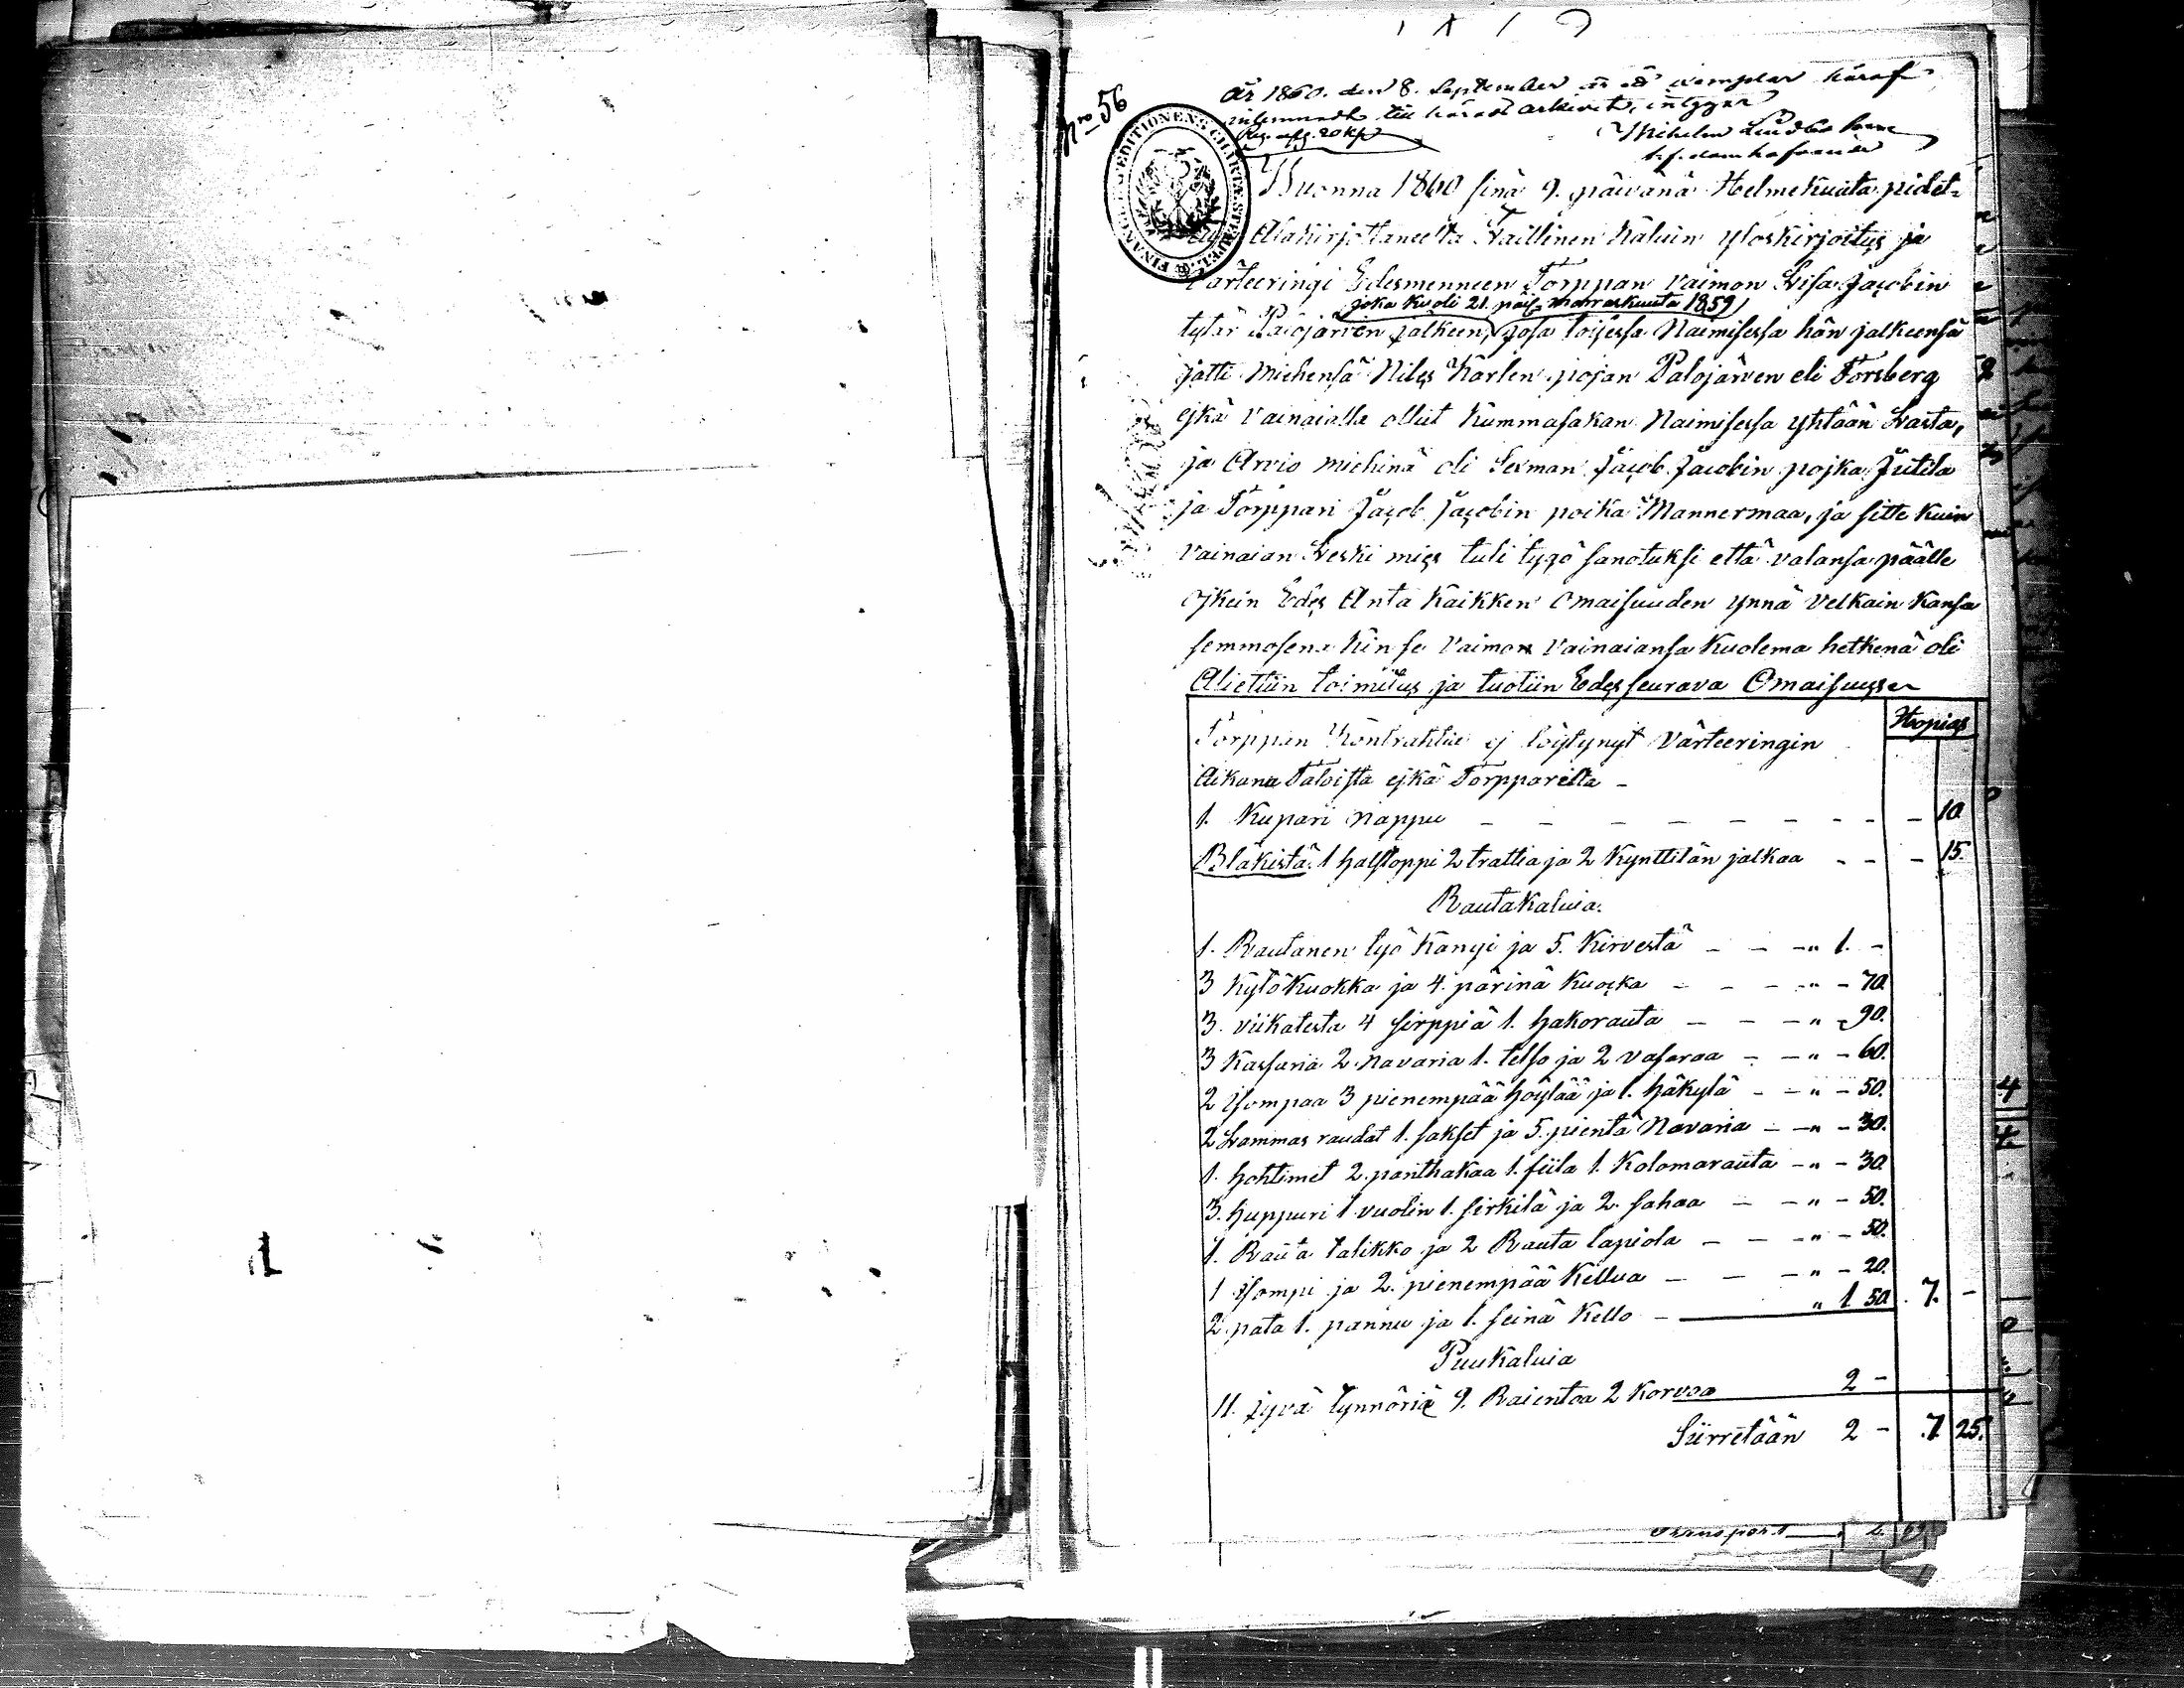 Nro 56
år 1860. den 8. September är ett exemplar häraf
inlemnadt till härads arkivet, intygar
Reg. afg. 20 kp
Wilhelm Lindbohm
t.f. domhafvande
FINANCE EXPEDITIONENS CHARTÆ STEMPEL
Wuonna 1860 sinä 9. päivänä Helmekuuta pidet-
Alakirjottaneelta Laillinen kaluin yloskirjoitus ja
värteeringi Edesmenneen Torppan vaimon Lisa Jacobin
joka kuoli 21. päiv. marraskuuta 1859
tytär Palojärven jälkeen, josa toisessa Naimisessa hän jalkeensä
jätti miehensä Niles Karlen pojan Palojärven eli Forsberg
ejkä vainaialla ollut kummasakan Naimisessa yhtään Lasta,
ja Arvio miehinä oli Lexman Jacob Jacobin pojka Jutila
ja Torppari Jacob Jacobin poika Mannermaa, ja sitte kuin
vainaian Leski mies tuli tygö sanotuksi että valansa päälle
ojkein Edes Anta kaikken Omaisuuden ynnä velkain kansa
semmosena kin se vaimon vainaiansa kuolema hetkenä oli
Aliettiin toimitus ja tuotiin Edes seurava Omaisuusse
Hopias
Torppan kontrahtia ej löytynyt värteeringin
Aikana Taloista ejkä Torpparilta -
1. Kupari nappu - - - - - - - - - - 10.
Bläkistä. 1 halstoppi 2 trattia ja 2 kynttilän jalkaa - - - 15.
Rautakaluia.
1. Rautanen työ kangi ja 5. kirvestä - - - " 1. -
3 kytökuokka ja 4. pärinä kuocka - - - " - 70.
3. viikatesta 4 sirppiä 1. hakorauta - - - " - 90.
3 kassaria 2. navaria 1. telso ja 2 vasaraa - - " - 60.
2 isompaa 3 pienempää höylää ja 1. häkylä - - " - 50.
2 Lammas raudat 1. sakset ja 5. pientä Navaria - - " - 30.
1. hohtimet 2. panthakaa 1. fiila 1. kolomarauta - " - 30.
3. huppuri 1 vuolin 1. sirkilä ja 2. sahaa - - " - 50.
1. Rauta talikko ja 2 Rauta lapiola - - - " - 50.
1 isompi ja 2. pienempää kellua - - - " - 20.
2. pata 1. pannu ja 1. seinä kello - " 1 50 7. -
Puukaluia
11. jyvä tynnöriä 9. Raientoa 2 korvoa 2 -
Siirretään 2 - 7. 25.
Transport